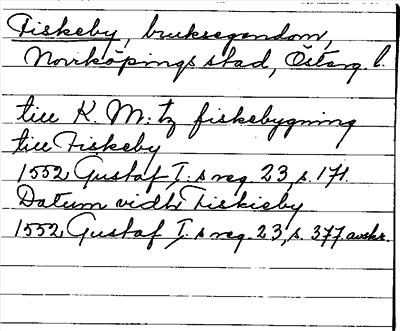 Fiskeby, bruksegendom,
Norrköpings stad, Österg. l.
till K. M:tz fiskebygning
till Fiskeby
1552 Gustaf I:s reg. 23, s. 171.
Datum vidh Fiskieby
1552 Gustaf I:s reg. 23, s. 377 avskr.